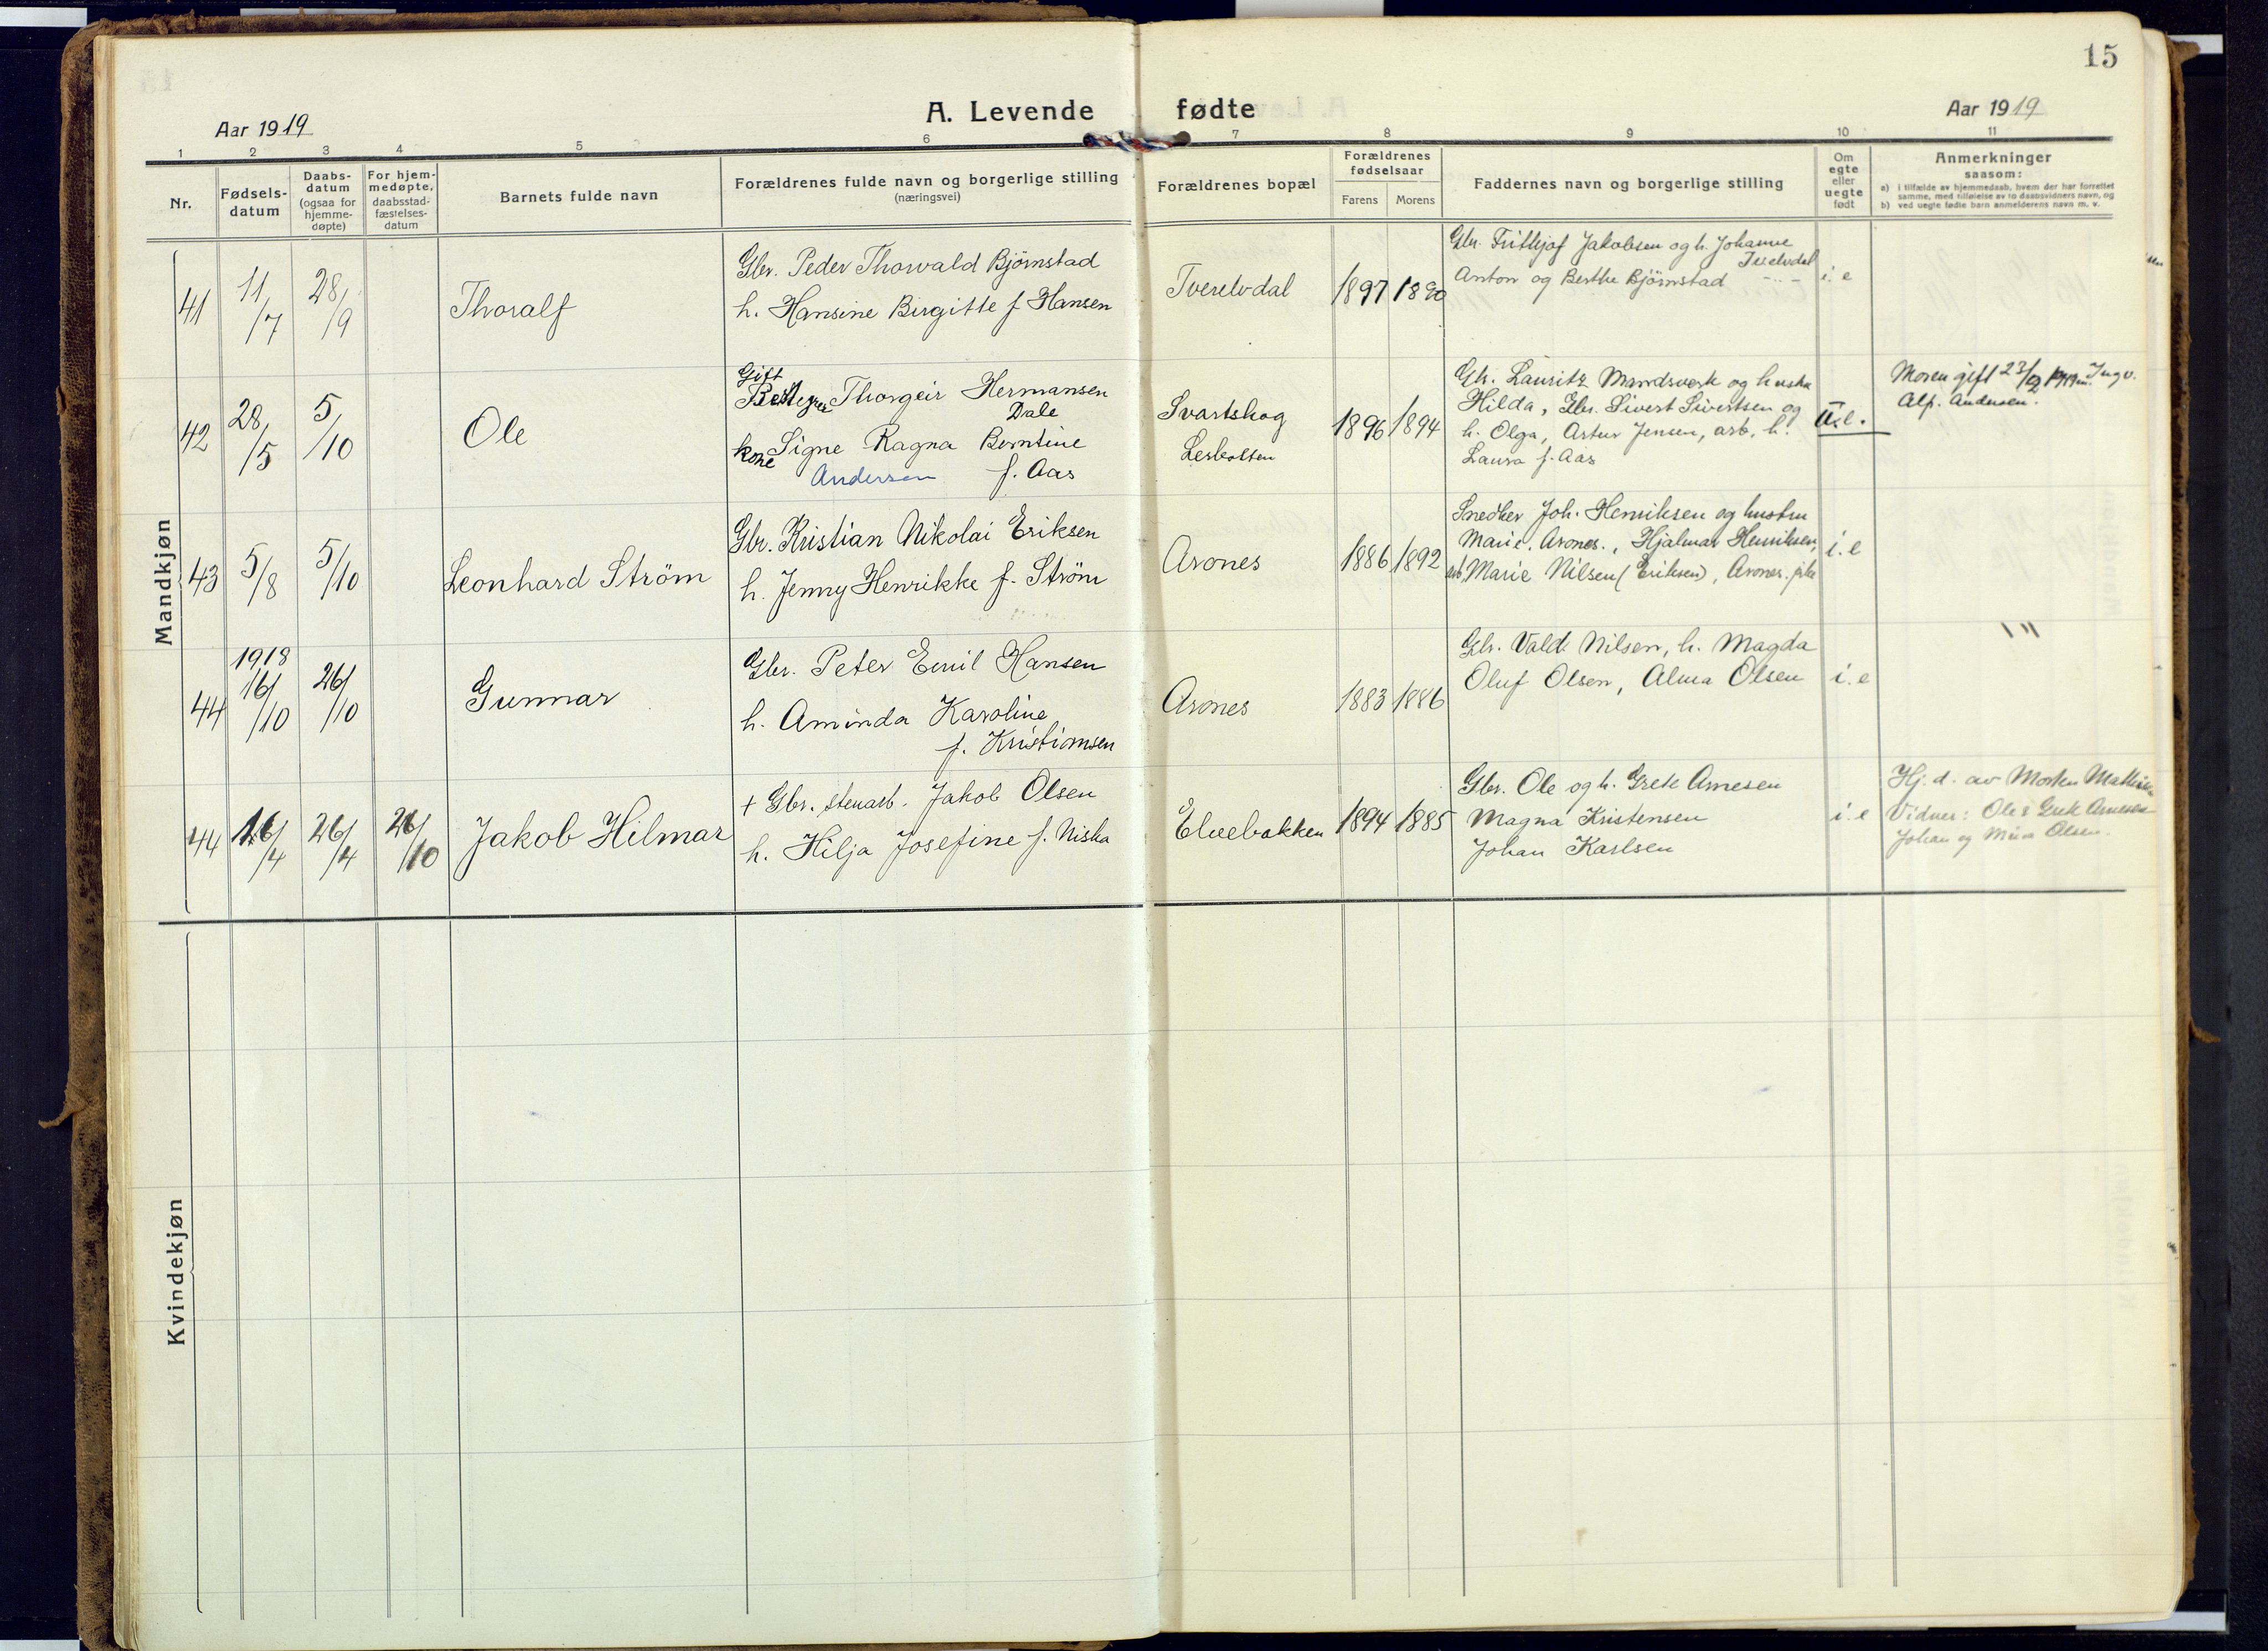 15
A. Levende fødte
Aar 1919
Aar 1919
1 2 3 4 5 6 7 8 9 10 11
Nr.
Fødsels-
datum
Daabs-
datum
(ogsaa for
hjemme-
døpte)
For hjem-
medøpte,
daabsstad-
fæstelses-
datum
Barnets fulde navn
Forældrenes fulde navn og borgerlige stilling
(næringsvei)
Forældrenes bopæl
Forældrenes
fødselsaar
Farens Morens
Faddernes navn og borgerlige stilling
Om
egte
eller
uegte
født
Anmerkninger
saasom:
a) i tilfælde av hjemmedaab, hvem der har forrettet
samme, med tilføielse av to daabsvidners navn, og
b) ved uegte fødte barn anmelderens navn m. v.
Mandkjøn
41 11/7 28/9 Thoralf
Gbr. Peder Thorvald Bjørnstad
h. Hansine Birgitte f. Hansen
Tverelvdal 1897 1890
Gbr. Frithjof Jakobsen og h. Johanne
Tverelvdal
Anton og Berthe Bjørnstad - " -
i. e
42 28/5 5/10 Ole
Gift
Thorgeir Hermansen
Dale
kone Signe Ragna Berntine
Andersen f. Aas
Svartskog
1896 1894
Gbr. Lauritz Mundsverk og hustru
Hilda, Gbr. Sivert Sivertsen og
h. Olga, Artur Jensen, arb. h.
Laura f. Aas
U.e.
Moren gift 23/ Ingv.
Alf. Andersen.
43 5/8 5/10 Leonhard Strøm
Gbr. Kristian Nikolai Eriksen
h. Jenny Henrikke f. Strøm
Arones 1886 1892
Snedker Joh. Henriksen og hustru
Marie, Arones., Hjalmar Henriksen,
arb, Marie Nilsen (Eriksen), Arones. pike
i. e
44 1918 16/10 26/10 Gunnar
Gbr. Peter Emil Hansen
h. Aminda Karoline
f. Kristiansen
Arones 1883 1886
Gbr. Vald. Nilsen, h. Magda
Oluf Olsen, Alma Olsen
i. e
44 16/4 26/4 26/10 Jakob Hilmar
+ Gbr. stenarb. Jakob Olsen
h. Hilja Josefine f. Niska
Elvebakken 1894 1885
Gbr. Ole og h. Grete Arnesen
Magna Kristensen
Johan Karlsen
i. e
Hj. d. av Morten
Vidner: Ole & Grete Arnesen
Johan og Olsen.
Kvindekjøn